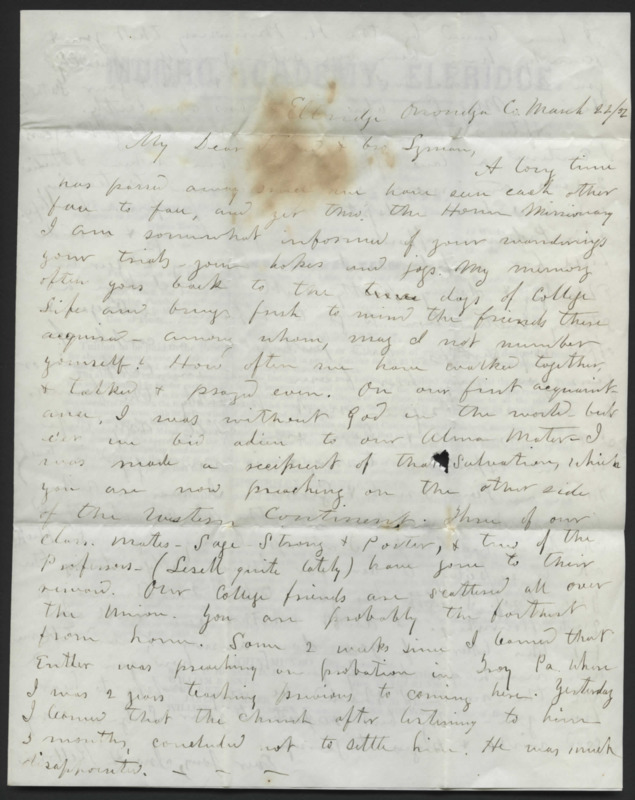 MUNRO ACADEMY, ELBRIDGE.
Elbridge Onondga Co. March 22/52
My Dear & bro Lyman,
A long time
has passd away since we have seen each other
face to face, and yet thro. the Home Missionary
I am somewhat informed of your wanderings
your trials your hopes and joys. My memory
often goes back to the days of College
Life and brings fresh to mind the friends there
acquired – among whom, may I not number
yourself? How often we have walked together,
& talked & prayed even. On our first acquaint-
ance, I was without God in the world but
ere we bid adieu to our Alma Mater – I
was made a recipient of that Salvation, which
you are now preaching on the other side
of the Western Continent. Three of our
class. mates – Sage Strong & Porter, & two of the
Professors – (Lesell quite lately) have gone to their
reward. Our College friends are scattered all over
the Union. You are probably the farthest
from home. Some 2 weeks since I learned that
Entler was preaching on probation in Troy Pa. where
I was 2 years teaching previous to coming here. Yesterday
I learned that the church after listening to him
3 months, concluded not to settle him. He was much
disappointed. – – –